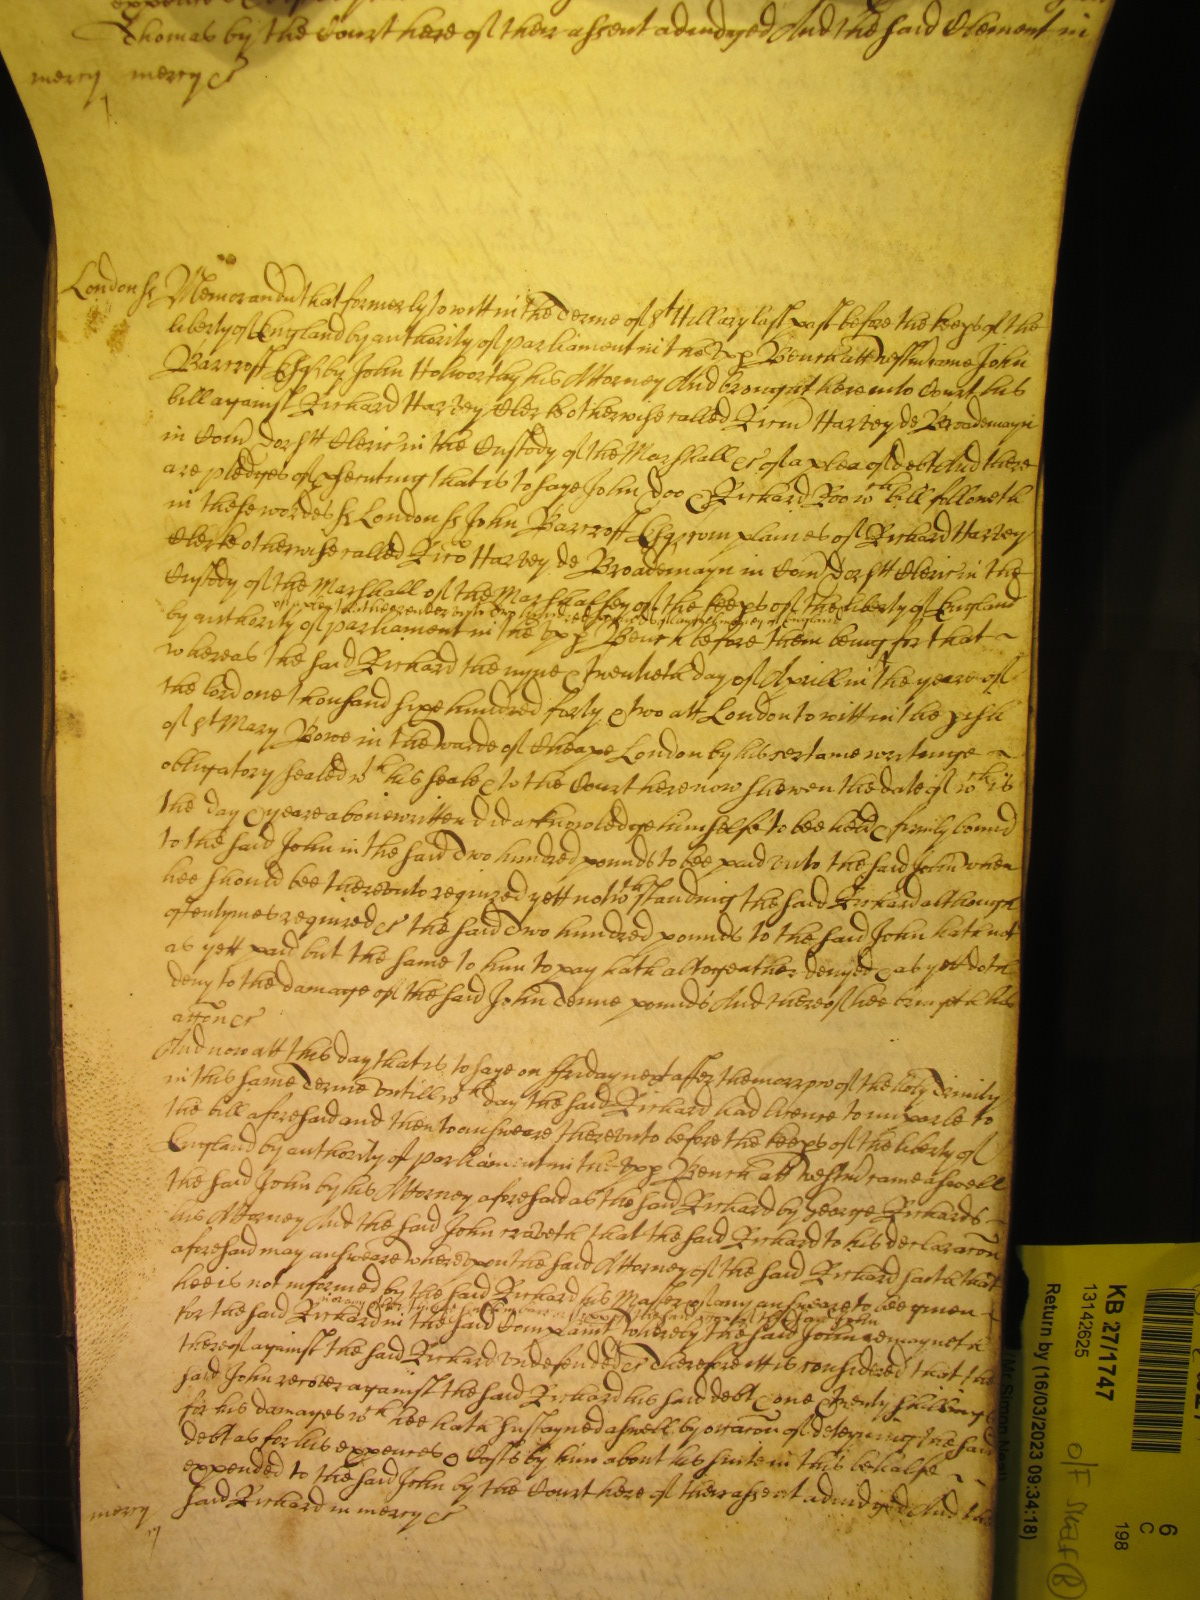 Thomas by the Court here of their assent adiudged And the said Clement in
mercy mercy &c
London ss Memorandu that formerly to witt in the Terme of St Hillary last past before the keeps of the
liberty of England by authority of parliament in the vpp Bench att Westm came John
Barcroft Esqr by John Holworthy his Attorney And brought here into Court his
bill against Richard Harvey Clerke otherwise called Ricm Harvey de Broademayn
in Com Dorstt Cleric in the Custody of the Marshall &c of a plea of debt And there
are pledges of psecuting that is to saye John Doo & Richard Roo wch bill followeth
in these wordes ss London ss John Barcroft Esqr complaines of Richard Harvey
Clerke otherwise called Rico Harvey de Broademayn in Com Dorstt Cleric in the
Custody of the Marshall of the Marshallsey of the keeps of the liberty of England
of a plea that hee render vnto him two hundred pounds of lawfull money of England
by authority of parliament in the vpp Bench before them being for that
whereas the said Richard the nyne & twentieth day of Aprill in the yeare of
the lord one thousand sixe hundred forty & two att London to witt in the pish
of St Mary Bowe in the warde of Cheape London by his certaine writinge
obligatory sealed wth his seale & to the Court here now shewen the date of wch is
the day & yeare aboue written did acknowledge himselfe to bee held & firmly bound
to the said John in the said Two hundred pounds to bee paid vnto the said John when
hee should bee therevnto required yett notwthstanding the said Richard although
oftentymes required &c the said Two hundred pounds to the said John hath not
as yett paid but the same to him to pay hath altogeather denyed & as yet doth
deny to the damage of the said John Tenne pounds And thereof hee bringeth his
accon &c
And now att this day that is to saye on ffriday next after the morrow of the holy Trinity
in this same Terme vntill wch day the said Richard had licence to imparle to
the bill aforesaid and then to answeare therevnto before the keeps of the liberty of
England by authority of parliament in the vpp Bench att Westm came aswell
the said John by his Attorney aforesaid as the said Richard by George Richards
his Attorney And the said John craveth that the said Richard to his declaracon
aforesaid may answeare wherevpon the said Attorney of the said Richard saith that
hee is not informed by the said Richard his Master of any answeare to bee given
for the said Richard in the said Complaint whereby the said John remayneth
thereof against the said Richard vndefended &c Therefore itt is considered that the
said John recover against the said Richard his said debt & one & twenty shillings
for his damages wch hee hath susteyned aswell by occacon of deteyning the said
debt as for his expences & Costs by him about his suite in this behalfe
expended to the said John by the Court here of their assent adiudged And the
mercy said Richard in mercy &c
KB 27/1747
13142625
Return by (16/03/2023 09:34:18)
198
6
C
O/F Shelf (B)